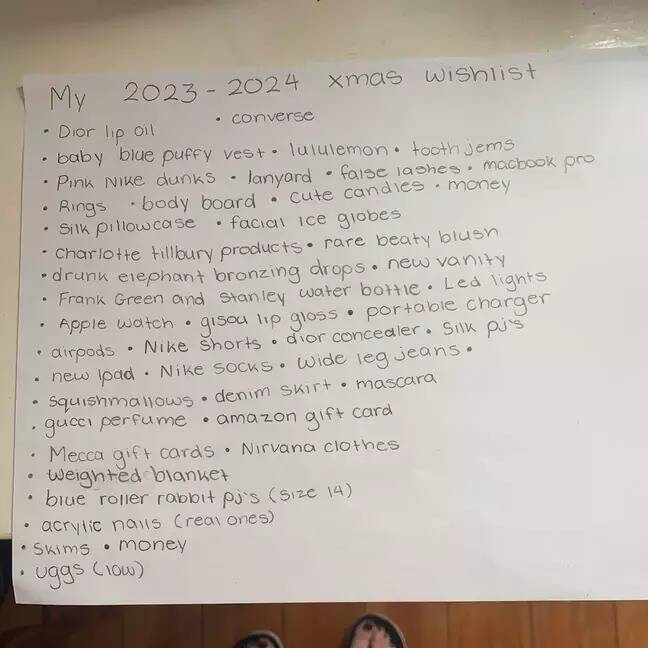 My 2023-2024 xmas wishlist
• Dior lip oil • converse
• baby blue puffy vest • lululemon • tooth jems
• Pink Nike dunks • lanyard • false lashes • macbook pro
• Rings • body board • cute candles • money
• Silk pillowcase • facial ice globes
• charlotte tillbury products • rare beaty blush
• drunk elephant bronzing drops • new vanity
• Frank Green and Stanley water bottle • Led lights
• Apple watch • gisou lip gloss • portable charger
• airpods • Nike shorts • dior concealer • Silk pj's
• new Ipad • Nike socks • Wide leg jeans •
• squishmallows • denim skirt • mascara
• gucci perfume • amazon gift card
• Mecca gift cards • Nirvana clothes
• weighted blanket
• blue roller rabbit pj's (size 14)
• acrylic nails (real ones)
• skims • money
• uggs (low)